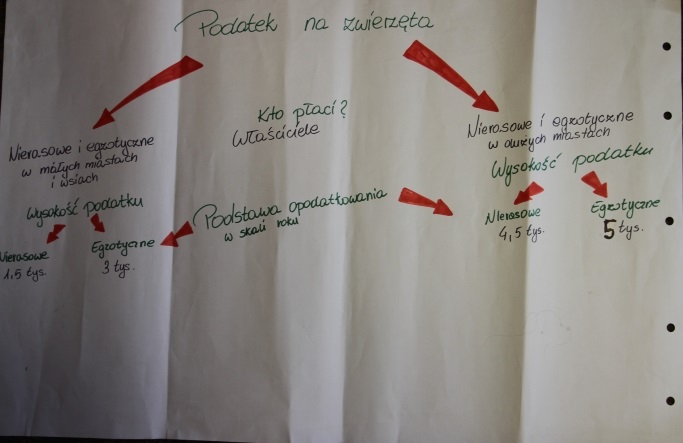 Podatek na zwierzęta
Kto płaci?
Właściciele
Nierasowe i egzotyczne
w małych miastach
i wsiach
Wysokość podatku
Nierasowe
1,5 tys.
Egzotyczne
3 tys.
Podstawa opodatkowania
w skali roku
Nierasowe i egzotyczne
w dużych miastach
Wysokość podatku
Nierasowe
4,5 tys.
Egzotyczne
5 tys.